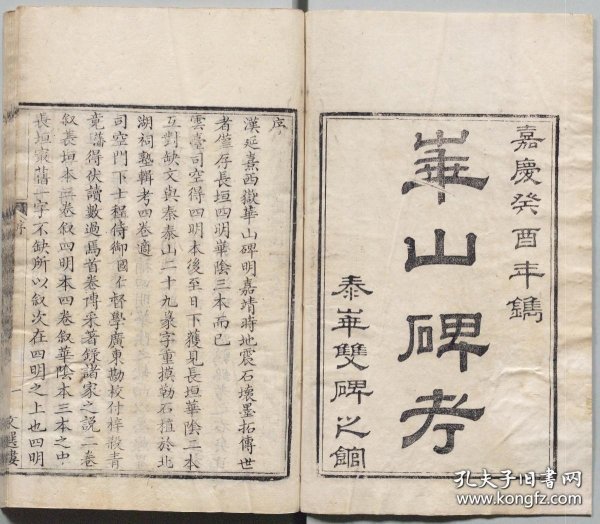 嘉慶癸酉年鐫
華山碑考
泰華雙碑之館
序
漢延熹西嶽華山碑明嘉靖時地震石壞墨拓傳世
者僅存長垣四明華陰三本而已
雲臺司空得四明本後至日下獲見長垣華陰二本
互對缺文與秦泰山二十九篆字重摸勒石植於北
湖祠塾輯考四卷適
司空門下士程侍御國仁督學廣東勘校付梓授青
藩得伏讀數過焉首卷博采著錄諸家之說二卷
叙長垣本三卷叙四明本四卷叙華陰本三本之中
長垣最舊一字不缺所以叙次在四明之上也四明
序
一
文選樓
孔夫子旧书网
www.kongfz.com